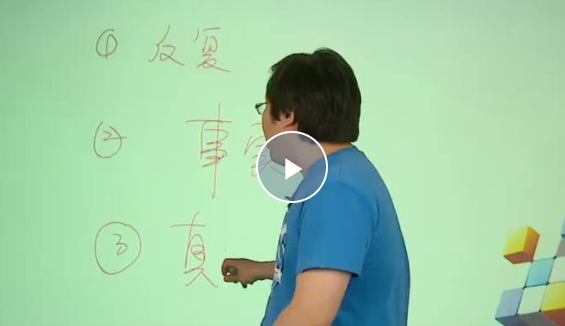 ① 反复
② 事
③ 真